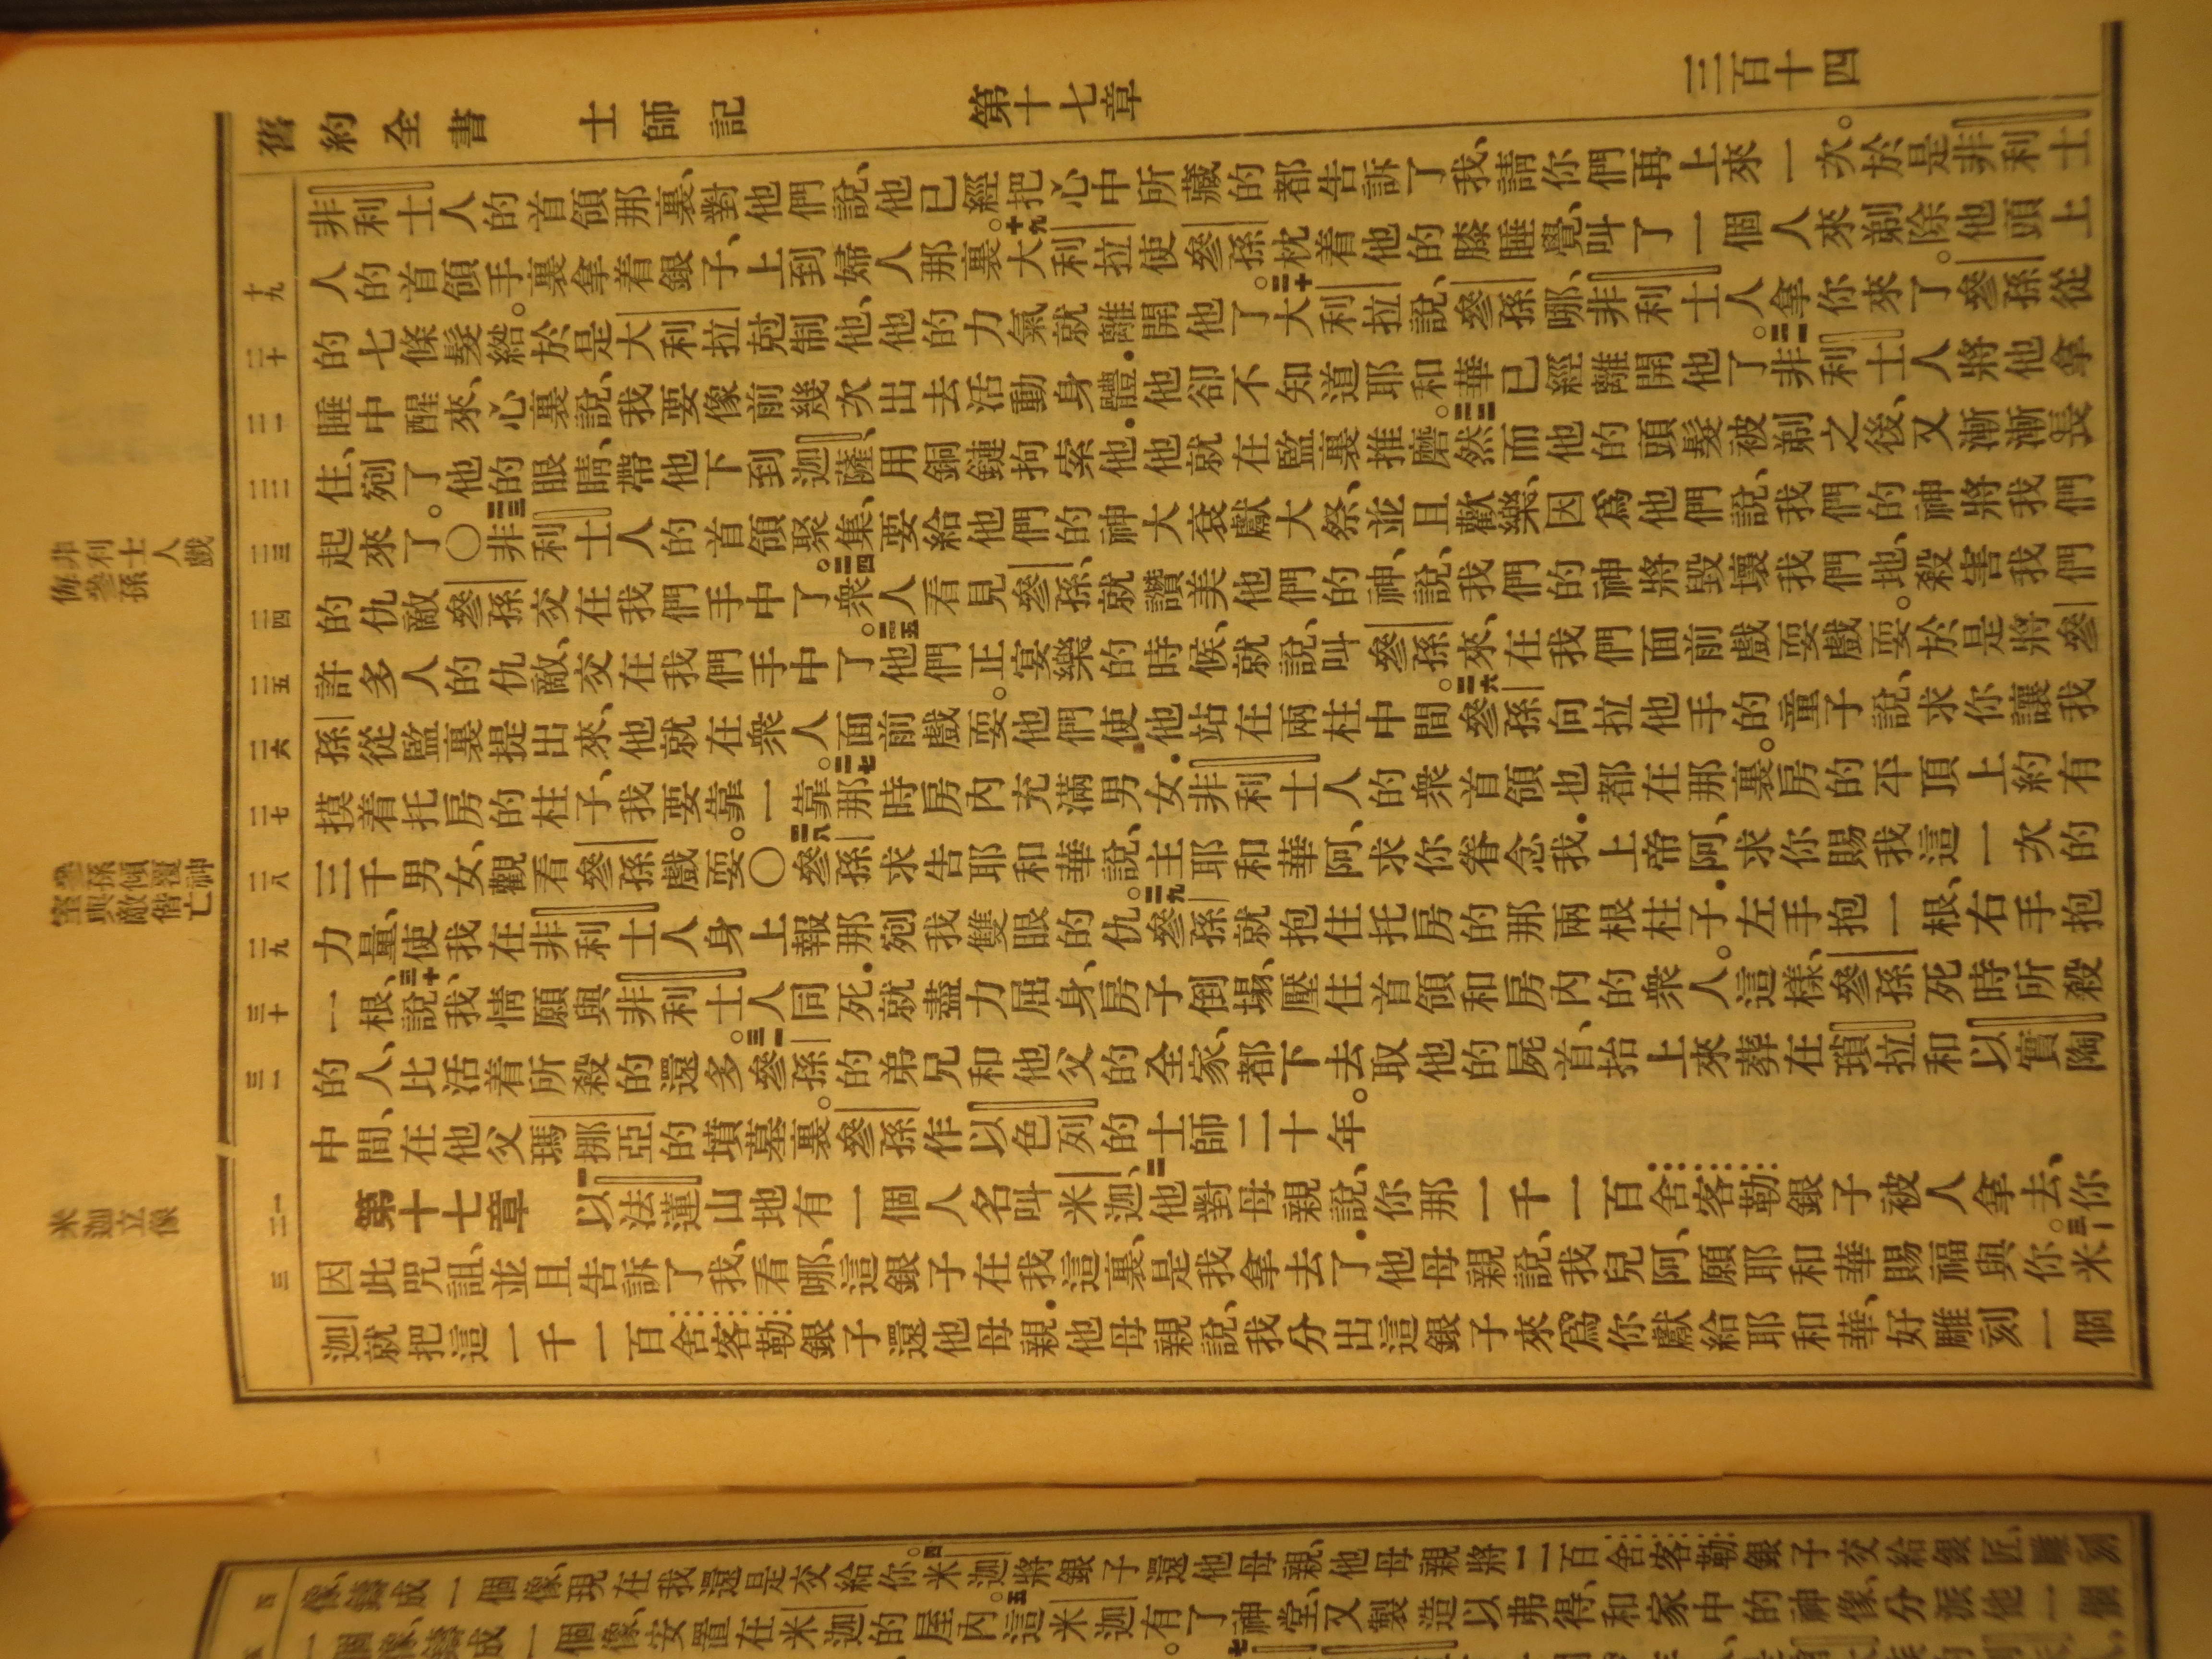 舊約全書 士師記 第十七章 三百十四
非利士人戲
侮參孫
參孫傾覆神
室與敵偕亡
米迦立像
十九 二十 二一 二二 二三 二四 二五 二六 二七 二八 二九 三十 三一 一二 三
非利士人的首領那裏、對他們說、他已經把心中所藏的都告訴了我、請你們再上來一次。於是非利士
人的首領手裏拿着銀子、上到婦人那裏。十九大利拉使參孫枕着他的膝睡覺、叫了一個人來剃除他頭上
的七條髮綹。於是大利拉剋制他、他的力氣就離開他了。二十大利拉說、參孫哪、非利士人拿你來了。參孫從
睡中醒來、心裏說、我要像前幾次出去活動身體.他卻不知道耶和華已經離開他了。二一非利士人將他拿
住、剜了他的眼睛、帶他下到迦薩、用銅鏈拘索他.他就在監裏推磨。二二然而他的頭髮被剃之後、又漸漸長
起來了。○二三非利士人的首領聚集、要給他們的神大袞獻大祭、並且歡樂、因爲他們說、我們的神將我們
的仇敵參孫交在我們手中了。二四衆人看見參孫、就讚美他們的神、說、我們的神將毀壞我們地、殺害我們
許多人的仇敵、交在我們手中了。二五他們正宴樂的時候、就說、叫參孫來、在我們面前戲耍戲耍。於是將參
孫從監裏提出來、他就在衆人面前戲耍。他們使他站在兩柱中間。二六參孫向拉他手的童子說、求你讓我
摸着托房的柱子、我要靠一靠。二七那時房內充滿男女.非利士人的衆首領也都在那裏。房的平頂上約有
三千男女、觀看參孫戲耍。○二八參孫求告耶和華說、主耶和華阿、求你眷念我.上帝阿、求你賜我這一次的
力量、使我在非利士人身上報那剜我雙眼的仇。二九參孫就抱住托房的那兩根柱子.左手抱一根、右手抱
一根、三十說、我情願與非利士人同死.就盡力屈身、房子倒塌、壓住首領和房內的衆人。這樣、參孫死時所殺
的人、比活着所殺的還多。三一參孫的弟兄和他父的全家、都下去取他的屍首、抬上來葬在瑣拉和以實陶
中間、在他父瑪挪亞的墳墓裏。參孫作以色列的士師二十年。
第十七章 以法蓮山地有一個人名叫米迦、二他對母親說、你那一千一百舍客勒銀子被人拿去、你
因此咒詛、並且告訴了我、看哪、這銀子在我這裏、是我拿去了.他母親說、我兒阿、願耶和華賜福與你。三米
迦就把這一千一百舍客勒銀子還他母親.他母親說、我分出這銀子來爲你獻給耶和華、好雕刻一個
四
像、鑄成一個像、現在我還是交給你。四米迦將銀子還他母親、他母親將二百舍客勒銀子交給銀匠、雕刻
一個像、鑄成一個像、安置在米迦的屋內。五這米迦有了神堂、又製造以弗得、和家中的神像、分派他一個